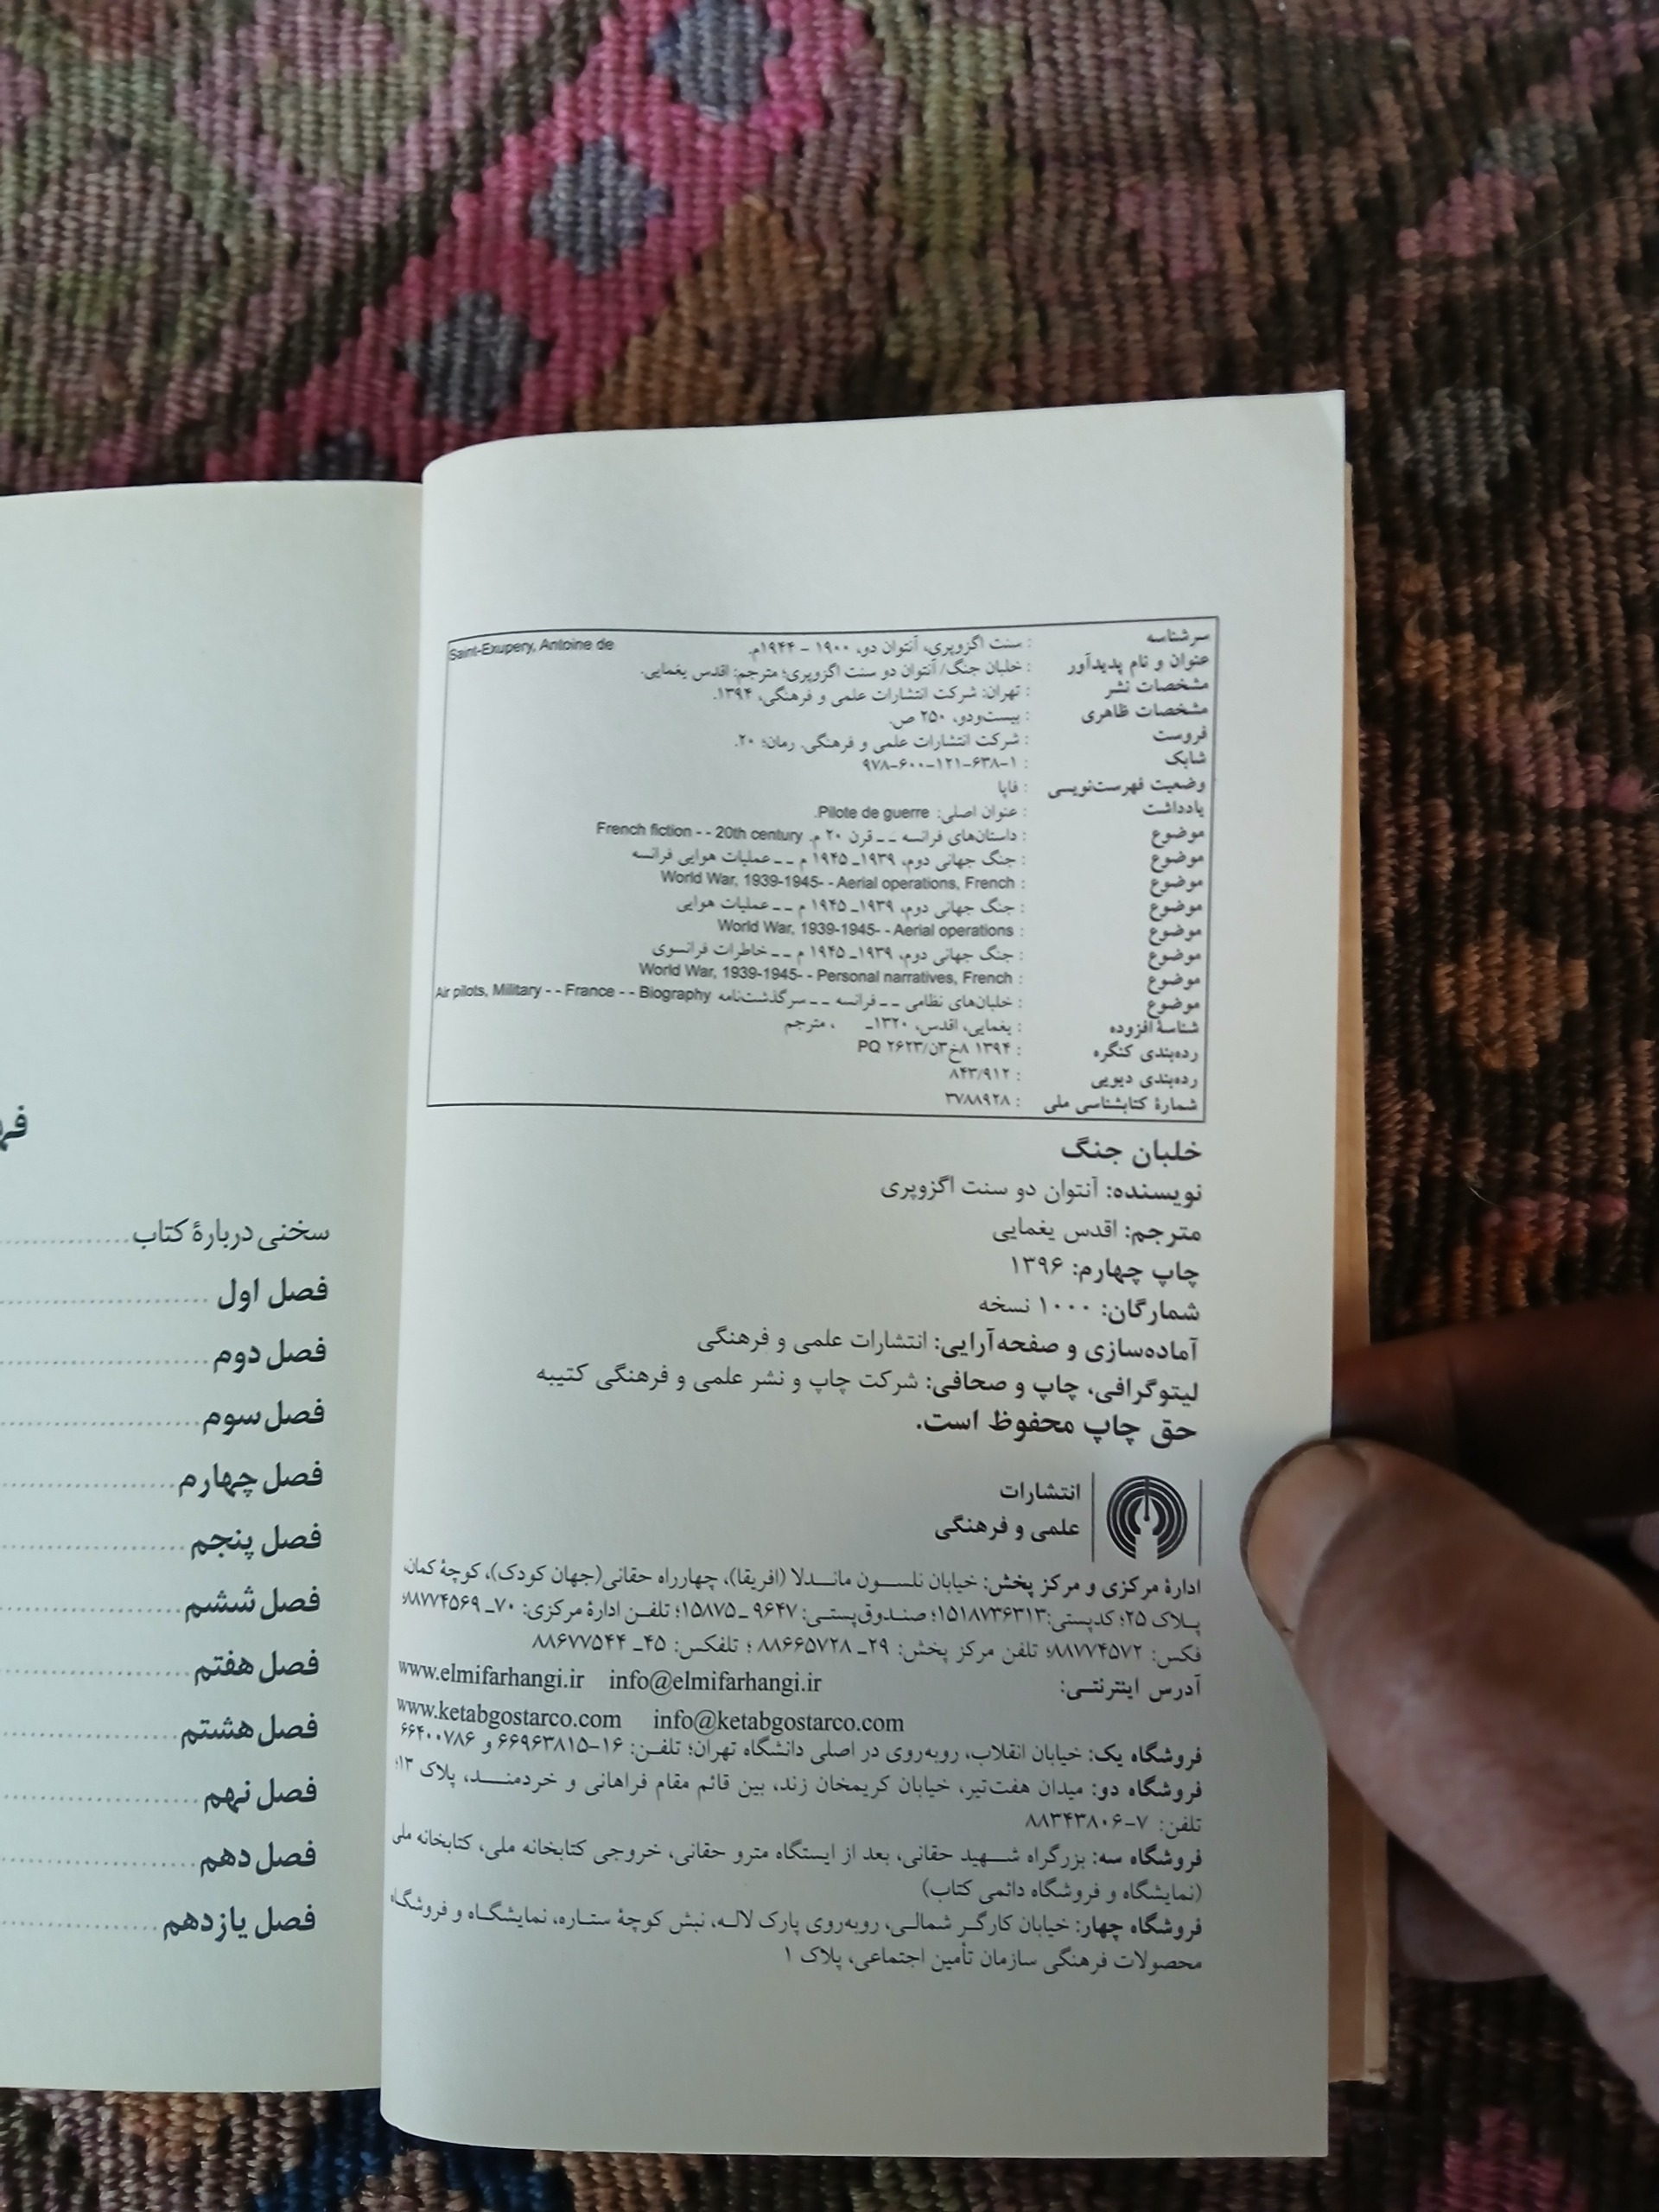 سرشناسه : سنت اگزوپری، آنتوان دو، ۱۹۰۰ - ۱۹۴۴م. Saint-Exupery, Antoine de
عنوان و نام پدیدآور : خلبان جنگ/ آنتوان دو سنت اگزوپری؛ مترجم: اقدس یغمایی.
مشخصات نشر : تهران: شرکت انتشارات علمی و فرهنگی، ۱۳۹۴.
مشخصات ظاهری : بیست‌ودو، ۲۵۰ ص.
فروست : شرکت انتشارات علمی و فرهنگی. رمان؛ ۲۰.
شابک : ۹۷۸-۶۰۰-۱۲۱-۶۳۸-۱
وضعیت فهرست‌نویسی : فاپا
یادداشت : عنوان اصلی: Pilote de guerre.
موضوع : داستان‌های فرانسه -- قرن ۲۰ م. French fiction - - 20th century
موضوع : جنگ جهانی دوم، ۱۹۳۹ـ ۱۹۴۵ م -- عملیات هوایی فرانسه
موضوع : World War, 1939-1945- - Aerial operations, French
موضوع : جنگ جهانی دوم، ۱۹۳۹ـ ۱۹۴۵ م -- عملیات هوایی
موضوع : World War, 1939-1945- - Aerial operations
موضوع : جنگ جهانی دوم، ۱۹۳۹ـ ۱۹۴۵ م -- خاطرات فرانسوی
موضوع : World War, 1939-1945- - Personal narratives, French
موضوع : خلبان‌های نظامی -- فرانسه -- سرگذشت‌نامه Air pilots, Military - - France - - Biography
شناسهٔ افزوده : یغمایی، اقدس، ۱۳۲۰ـ ، مترجم
رده‌بندی کنگره : ۱۳۹۴ ۸خ۳ن/PQ ۲۶۲۳
رده‌بندی دیویی : ۸۴۳/۹۱۲
شمارهٔ کتابشناسی ملی : ۳۷۸۸۹۲۸
خلبان جنگ
نویسنده: آنتوان دو سنت اگزوپری
مترجم: اقدس یغمایی
چاپ چهارم: ۱۳۹۶
شمارگان: ۱۰۰۰ نسخه
آماده‌سازی و صفحه‌آرایی: انتشارات علمی و فرهنگی
لیتوگرافی، چاپ و صحافی: شرکت چاپ و نشر علمی و فرهنگی کتیبه
حق چاپ محفوظ است.
انتشارات
علمی و فرهنگی
ادارهٔ مرکزی و مرکز پخش: خیابان نلسون ماندلا (افریقا)، چهارراه حقانی(جهان کودک)، کوچهٔ کمان،
پلاک ۲۵؛ کدپستی:۱۵۱۸۷۳۶۳۱۳؛ صندوق‌پستی: ۹۶۴۷ ـ ۱۵۸۷۵؛ تلفن ادارهٔ مرکزی: ۷۰ـ ۸۸۷۷۴۵۶۹؛
فکس: ۸۸۷۷۴۵۷۲؛ تلفن مرکز پخش: ۲۹ـ ۸۸۶۶۵۷۲۸ ؛ تلفکس: ۴۵ـ ۸۸۶۷۷۵۴۴
آدرس اینترنتی: www.elmifarhangi.ir info@elmifarhangi.ir
www.ketabgostarco.com info@ketabgostarco.com
فروشگاه یک: خیابان انقلاب، روبه‌روی در اصلی دانشگاه تهران؛ تلفن: ۱۶-۶۶۹۶۳۸۱۵ و ۶۶۴۰۰۷۸۶
فروشگاه دو: میدان هفت‌تیر، خیابان کریمخان زند، بین قائم مقام فراهانی و خردمند، پلاک ۱۳؛
تلفن: ۷-۸۸۳۴۳۸۰۶
فروشگاه سه: بزرگراه شهید حقانی، بعد از ایستگاه مترو حقانی، خروجی کتابخانه ملی، کتابخانه ملی
(نمایشگاه و فروشگاه دائمی کتاب)
فروشگاه چهار: خیابان کارگر شمالی، روبه‌روی پارک لاله، نبش کوچهٔ ستاره، نمایشگاه و فروشگاه
محصولات فرهنگی سازمان تأمین اجتماعی، پلاک ۱
سخنی دربارهٔ کتاب
فصل اول
فصل دوم
فصل سوم
فصل چهارم
فصل پنجم
فصل ششم
فصل هفتم
فصل هشتم
فصل نهم
فصل دهم
فصل یازدهم